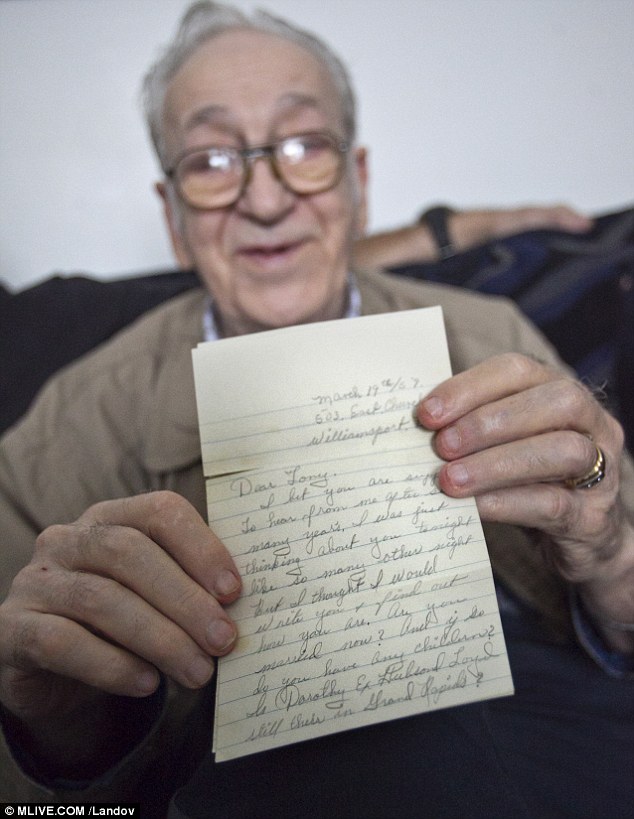 March 19th/07
502 East Church
Williamsport
Dear Tony,
I bet you are
To hear from me after
many years, I was just
thinking about you tonight
like so many other night
But I thought I would
write you & find out
how you are. Are you
married now? And if so
do you have any children?
Is (Dorothy Ex Husband Loyd
still there in Grand Rapids?
© MLIVE.COM /Landov